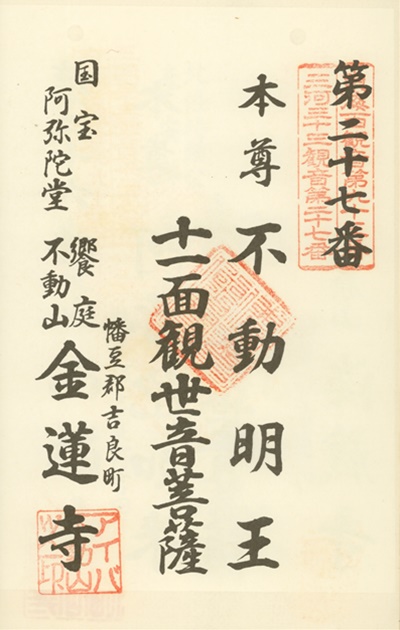 第二十七番
三河三十三観音第二十七番
本尊 不動明王
十一面観世音菩薩
幡豆郡吉良町
国宝 饗庭
阿弥陀堂 不動山 金蓮寺
アイバ